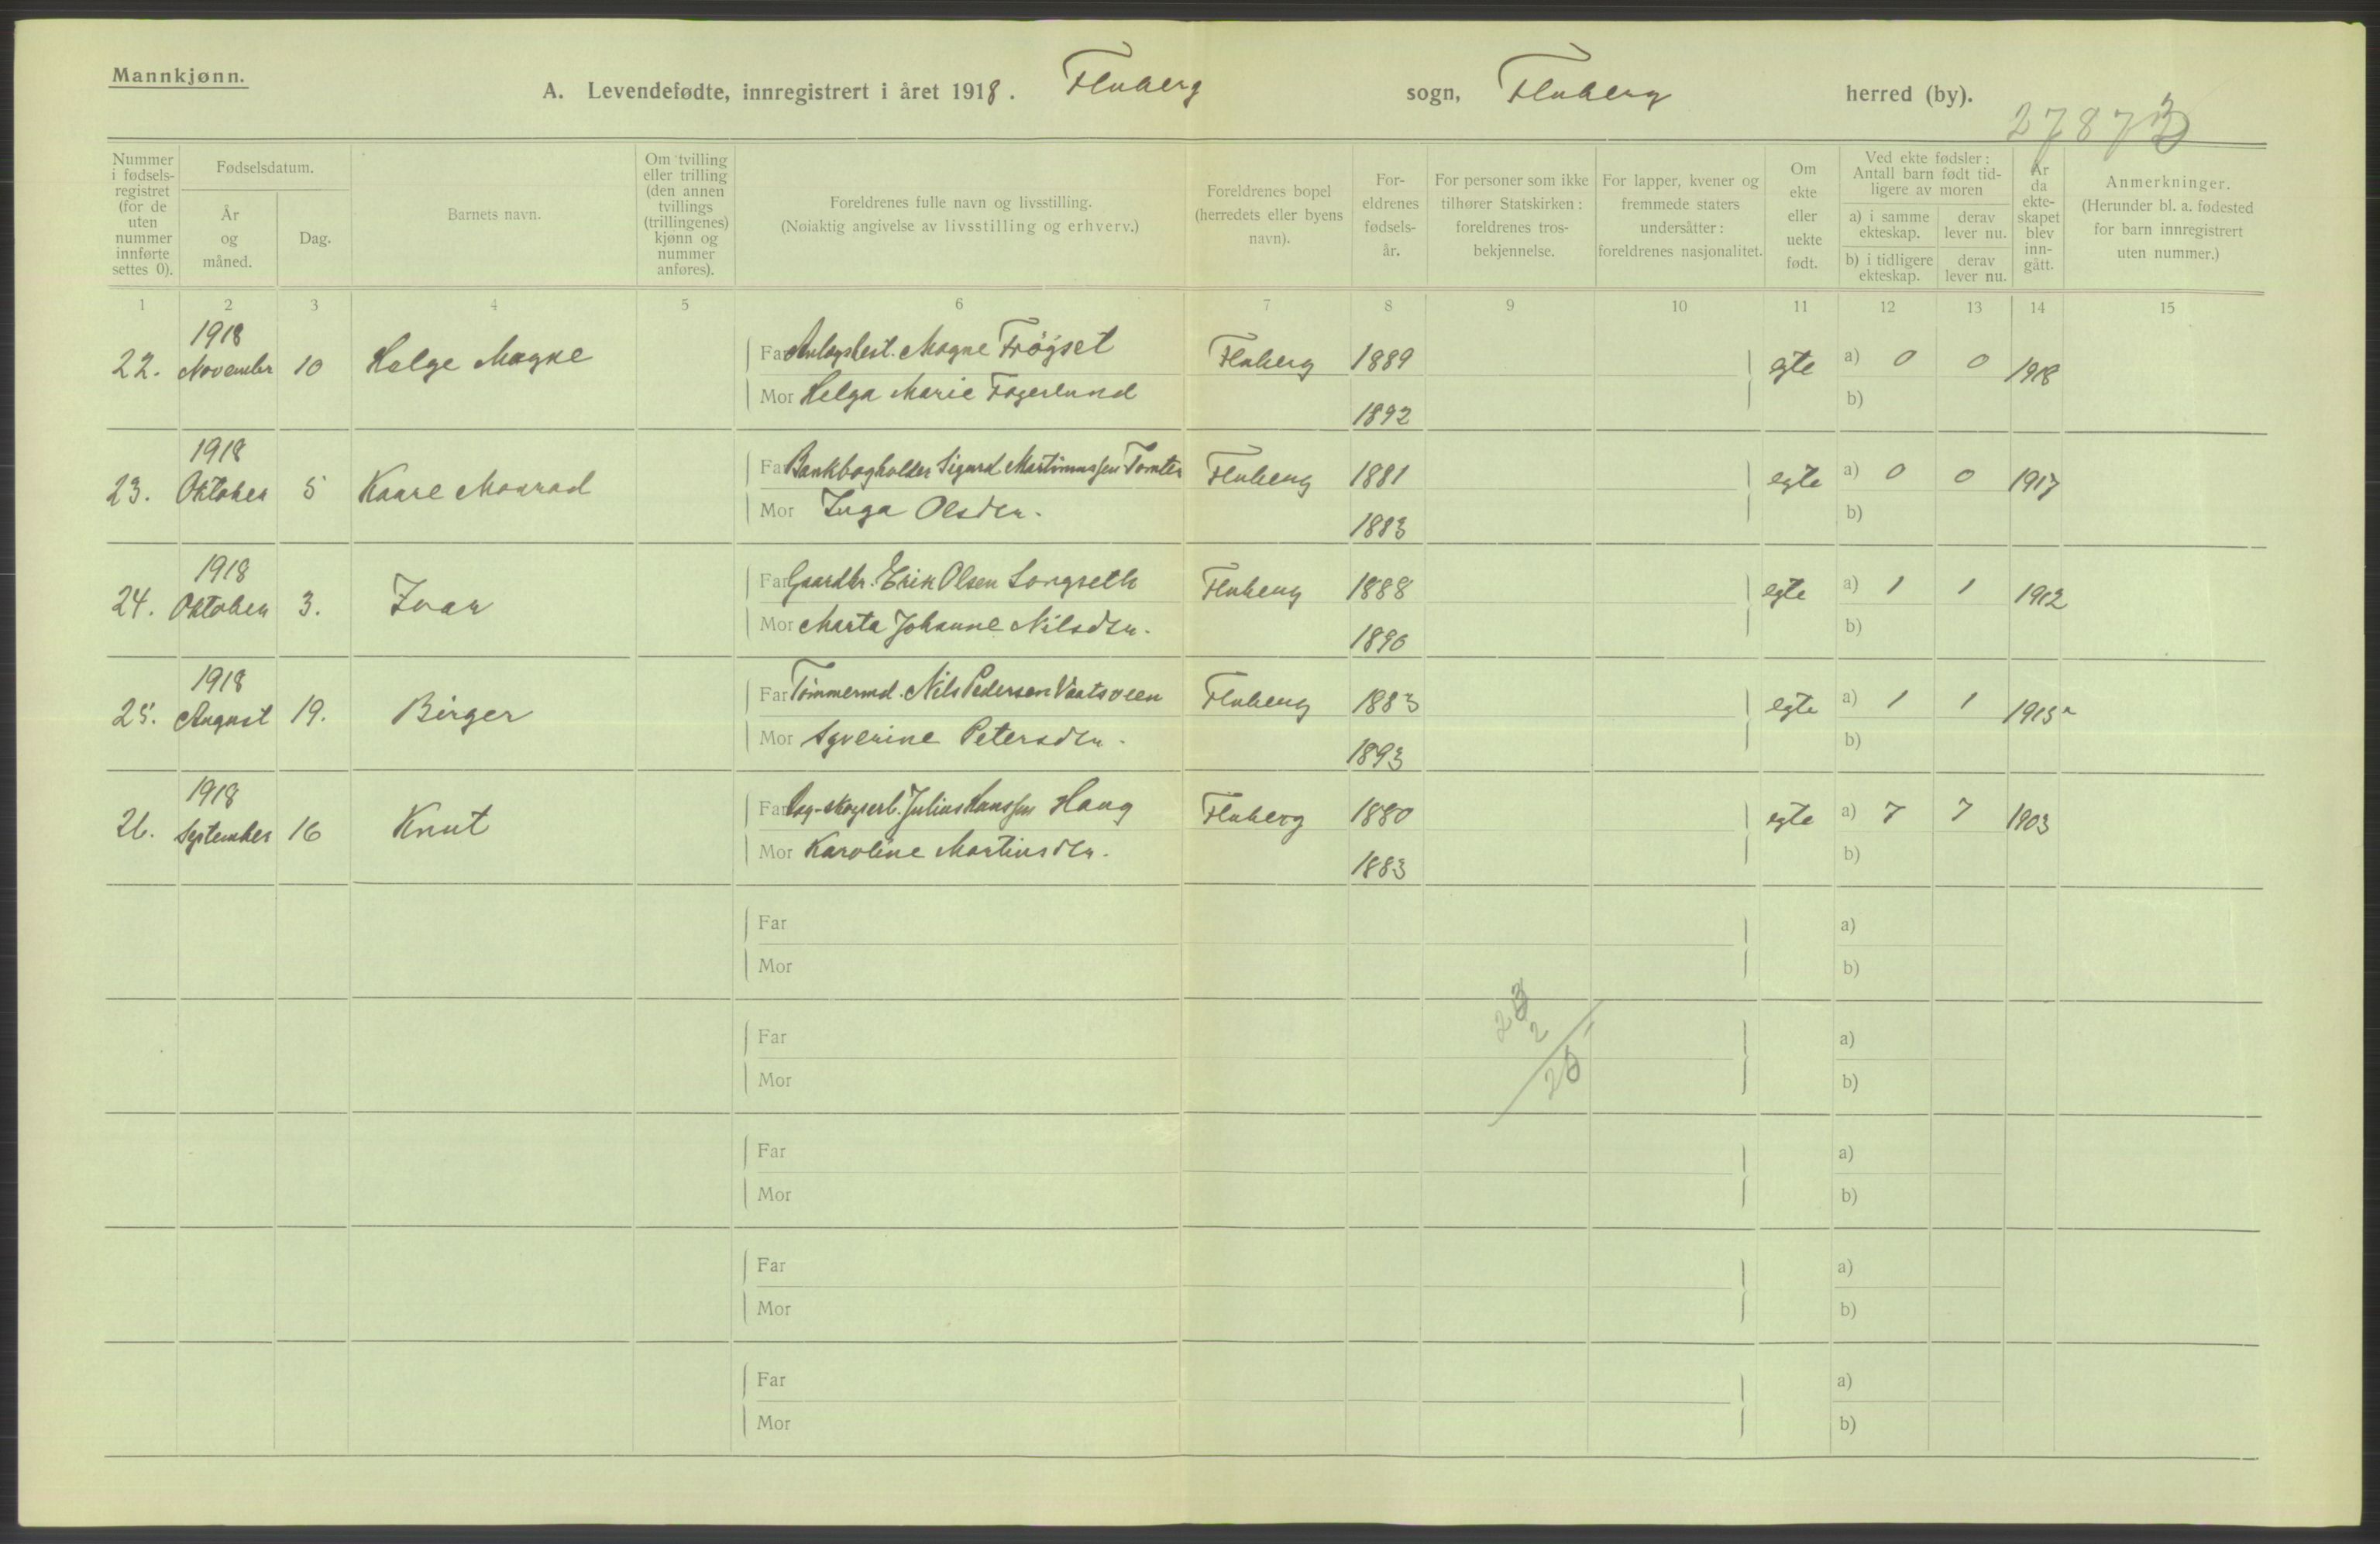 Mannkjønn.
A. Levendefødte, innregistrert i året 1918. Fluberg sogn, Fluberg herred (by).
2787
Nummer i fødselsregistret (for de uten nummer innførte settes 0).
Fødselsdatum.
År og måned.
Dag.
Barnets navn.
Om tvilling eller trilling (den annen tvillings (trillingenes) kjønn og nummer anføres).
Foreldrenes fulle navn og livsstilling.
(Nøiaktig angivelse av livsstilling og erhverv.)
Foreldrenes bopel (herredets eller byens navn).
Foreldrenes fødselsår.
For personer som ikke tilhører Statskirken: foreldrenes trosbekjennelse.
For lapper, kvener og fremmede staters undersåtter: foreldrenes nasjonalitet.
Om ekte eller uekte født.
Ved ekte fødsler: Antall barn født tidligere av moren
a) i samme ekteskap. derav lever nu.
b) i tidligere ekteskap. derav lever nu.
År da ekteskapet blev inngått.
Anmerkninger.
(Herunder bl. a. fødested for barn innregistrert uten nummer.)
1 2 3 4 5 6 7 8 9 10 11 12 13 14 15
1918
22. November 10 Helge Magne Far Magne Frøyset Fluberg 1889 egte a) 0 0 1918
Mor Helga Marie Fagerlund 1892 b)
1918
23. Oktober 5 Kaare Monrad Far Bankbogholder Sigurd Martinussen Tomter Fluberg 1881 egte a) 0 0 1917
Mor Inga Olsdtr. 1883 b)
1918
24. Oktober 3. Ivar Far Gaardbr. Erik Olsen Longseth Fluberg 1888 egte a) 1 1 1912
Mor Marta Johanne Nilsdtr. 1890 b)
1918
25. August 19. Birger Far Tømmermd. Nils Pedersen Vaatsveen Fluberg 1883 egte a) 1 1 1915
Mor Syverine Petersdtr. 1893 b)
1918
26. September 16 Knut Far Julius Hanssen Haug Fluberg 1880 egte a) 7 7 1903
Mor Karoline Martinsdtr. 1883 b)
Far a)
Mor b)
23
2
25
Far a)
Mor b)
Far a)
Mor b)
Far a)
Mor b)
Far a)
Mor b)